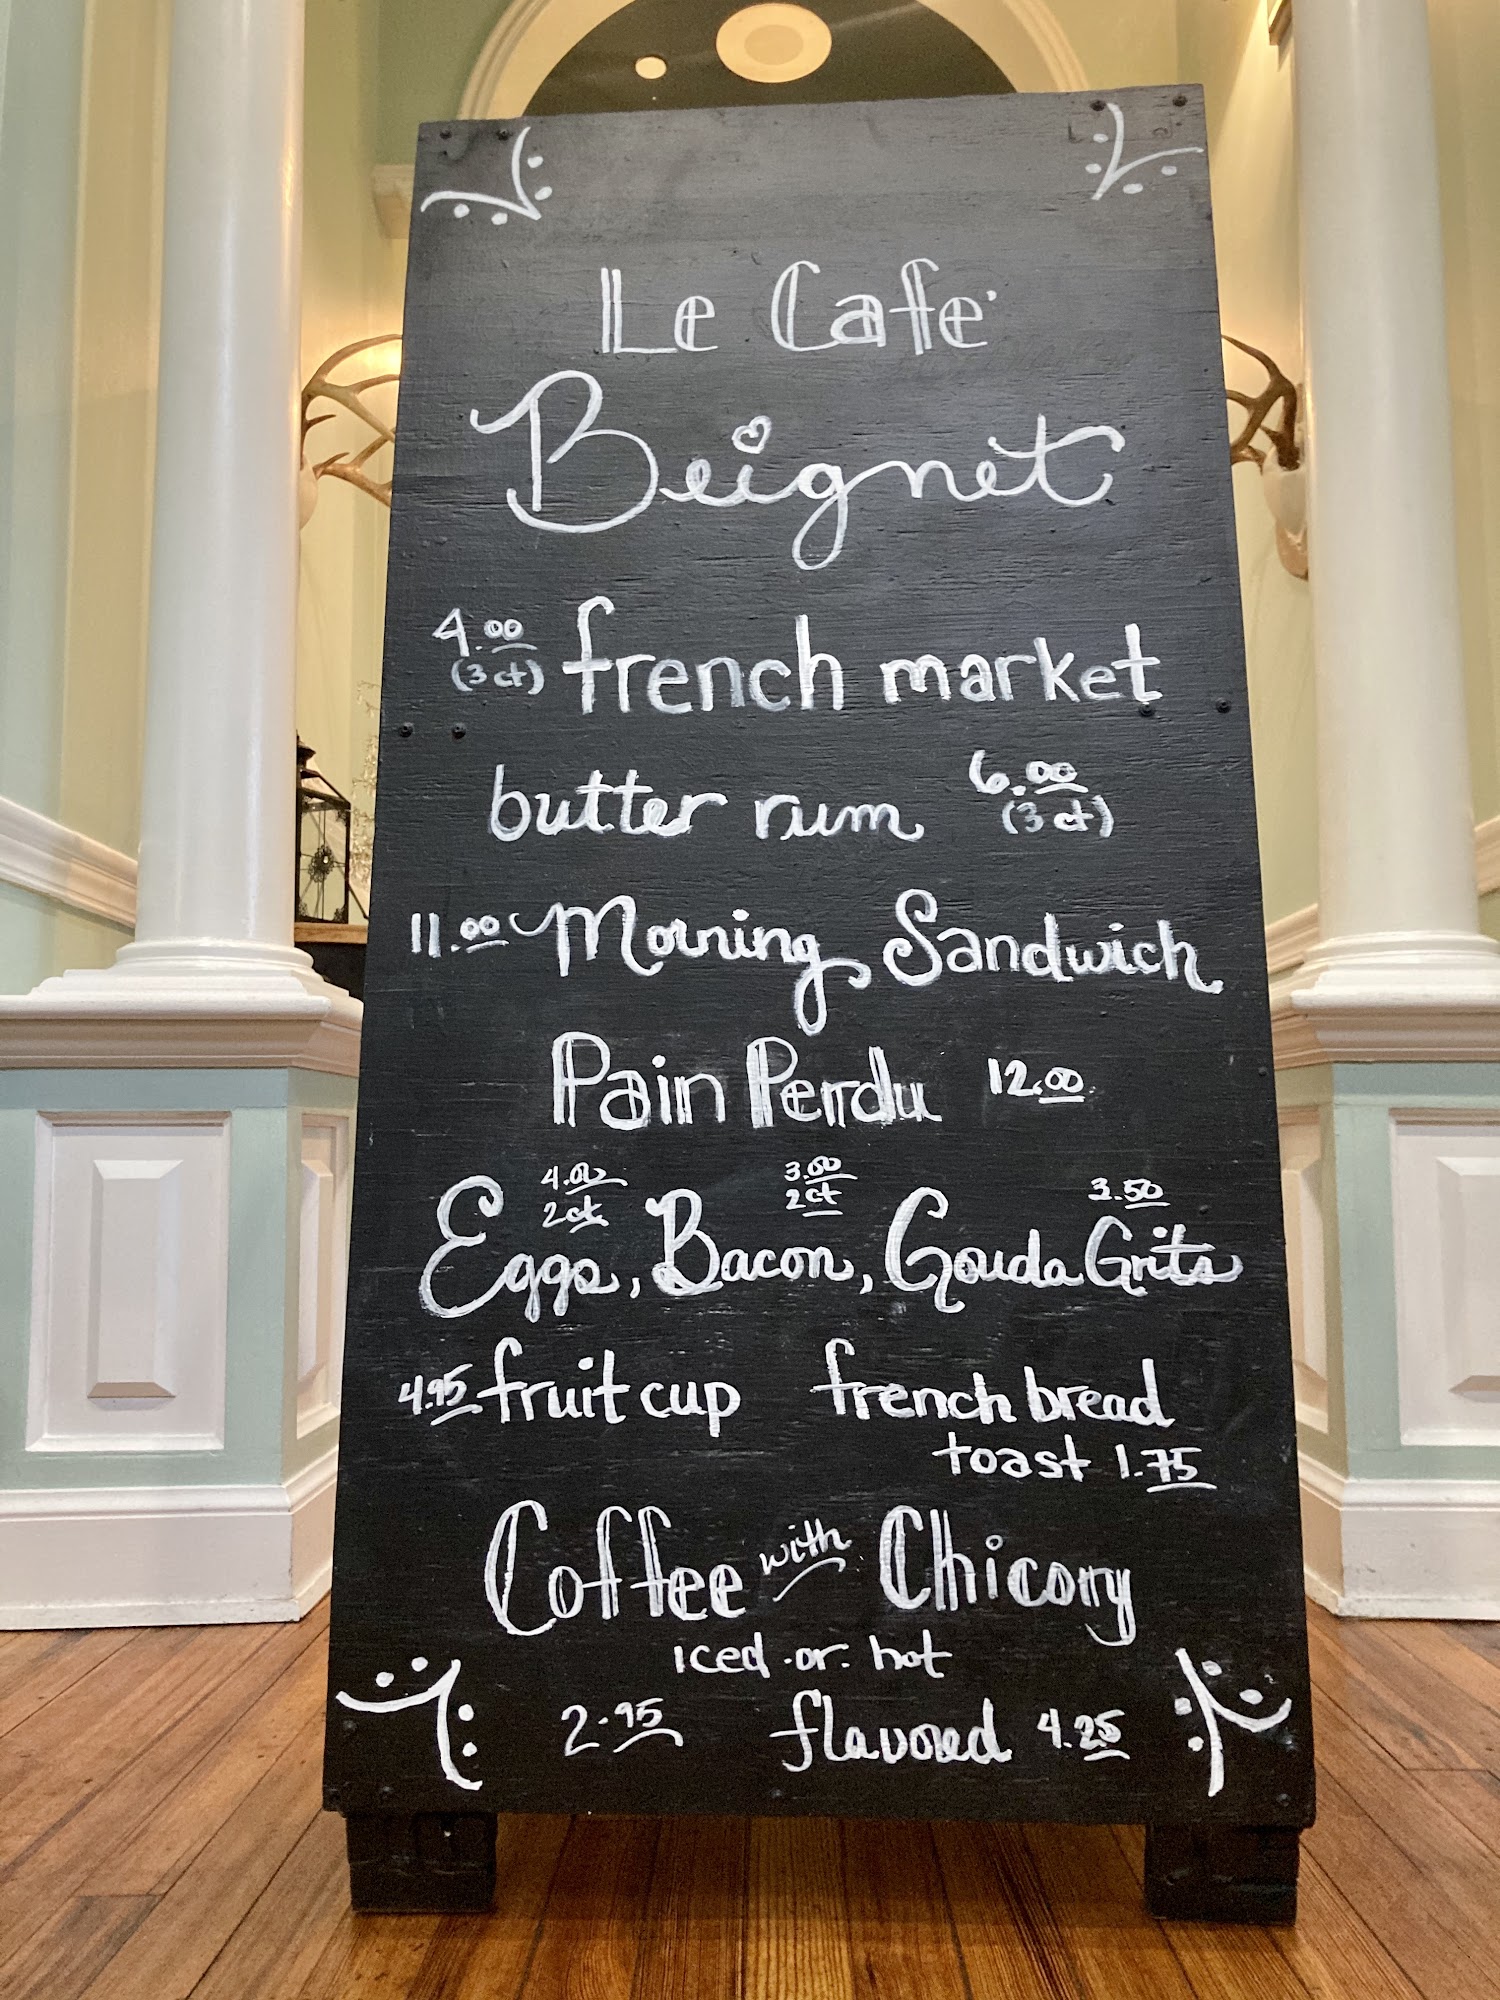 Le Cafe'
Beignet
4.00 (3 ct) french market
butter rum 6.00 (3 ct)
11.00 Morning Sandwich
Pain Perdu 12.00
4.00 2ct 3.00 2ct 3.50
Eggs, Bacon, Gouda Grits
4.95 fruit cup french bread
toast 1.75
Coffee with Chicory
iced or hot
2.95 flavored 4.25